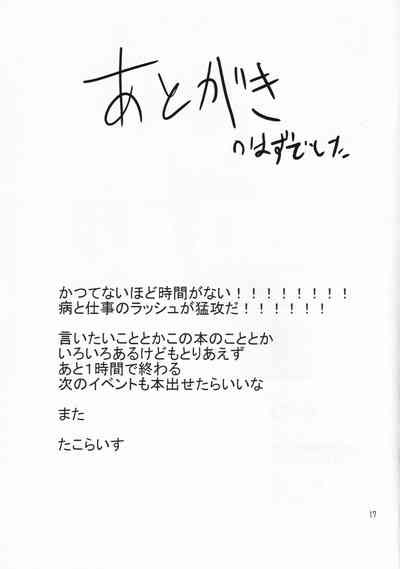 あとがき
のはずでした
かつてないほど時間がない！！！！！！！！
病と仕事のラッシュが猛攻だ！！！！！！
言いたいこととかこの本のこととか
いろいろあるけどもとりあえず
あと１時間で終わる
次のイベントも本出せたらいいな
また
たこらいす
17